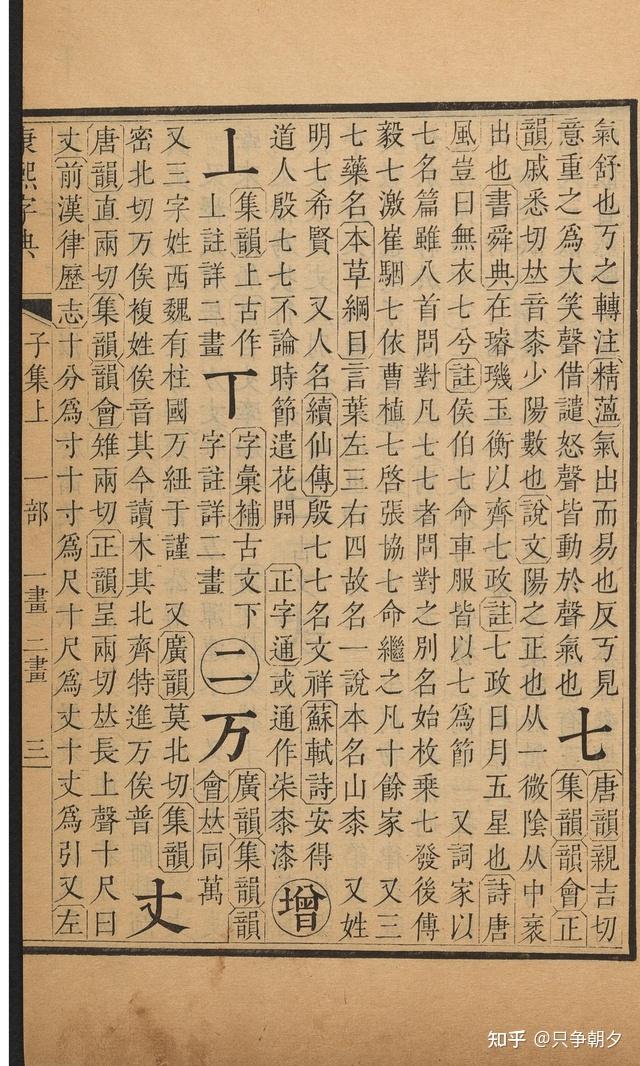 氣舒也丂之轉注精薀氣出而易也反丂見
意重之爲大笑聲借譴怒聲皆動於聲氣也
七
唐韻親吉切
集韻韻會正
韻戚悉切𠀤音桼少陽數也說文陽之正也从一微陰从中衺
出也書舜典在璿璣玉衡以齊七政註七政日月五星也詩唐
風豈曰無衣七兮註侯伯七命車服皆以七爲節 又詞家以
七名篇雖八首問對凡七七者問對之別名始枚乗七發後傅
毅七激崔駰七依曹植七啓張協七命繼之凡十餘家 又三
七藥名本草綱目言葉左三右四故名一說本名山桼 又姓
明七希賢 又人名續仙傳殷七七名文祥蘇軾詩安得
道人殷七七不論時節遣花開 正字通或通作柒桼漆
增
丄
集韻上古作
丄註詳二畫
丅
字彙補古文下
字註詳二畫
二
万
廣韻集韻韻
會𠀤同萬
又三字姓西魏有柱國万紐于謹 又廣韻莫北切集韻
密北切万俟複姓俟音其今讀木其北齊特進万俟普
丈
唐韻直兩切集韻韻會雉兩切正韻呈兩切𠀤長上聲十尺曰
丈前漢律歷志十分爲寸十寸爲尺十尺爲丈十丈爲引又左
康熙字典 子集上 一部 一畫 二畫 三
知乎 @只争朝夕